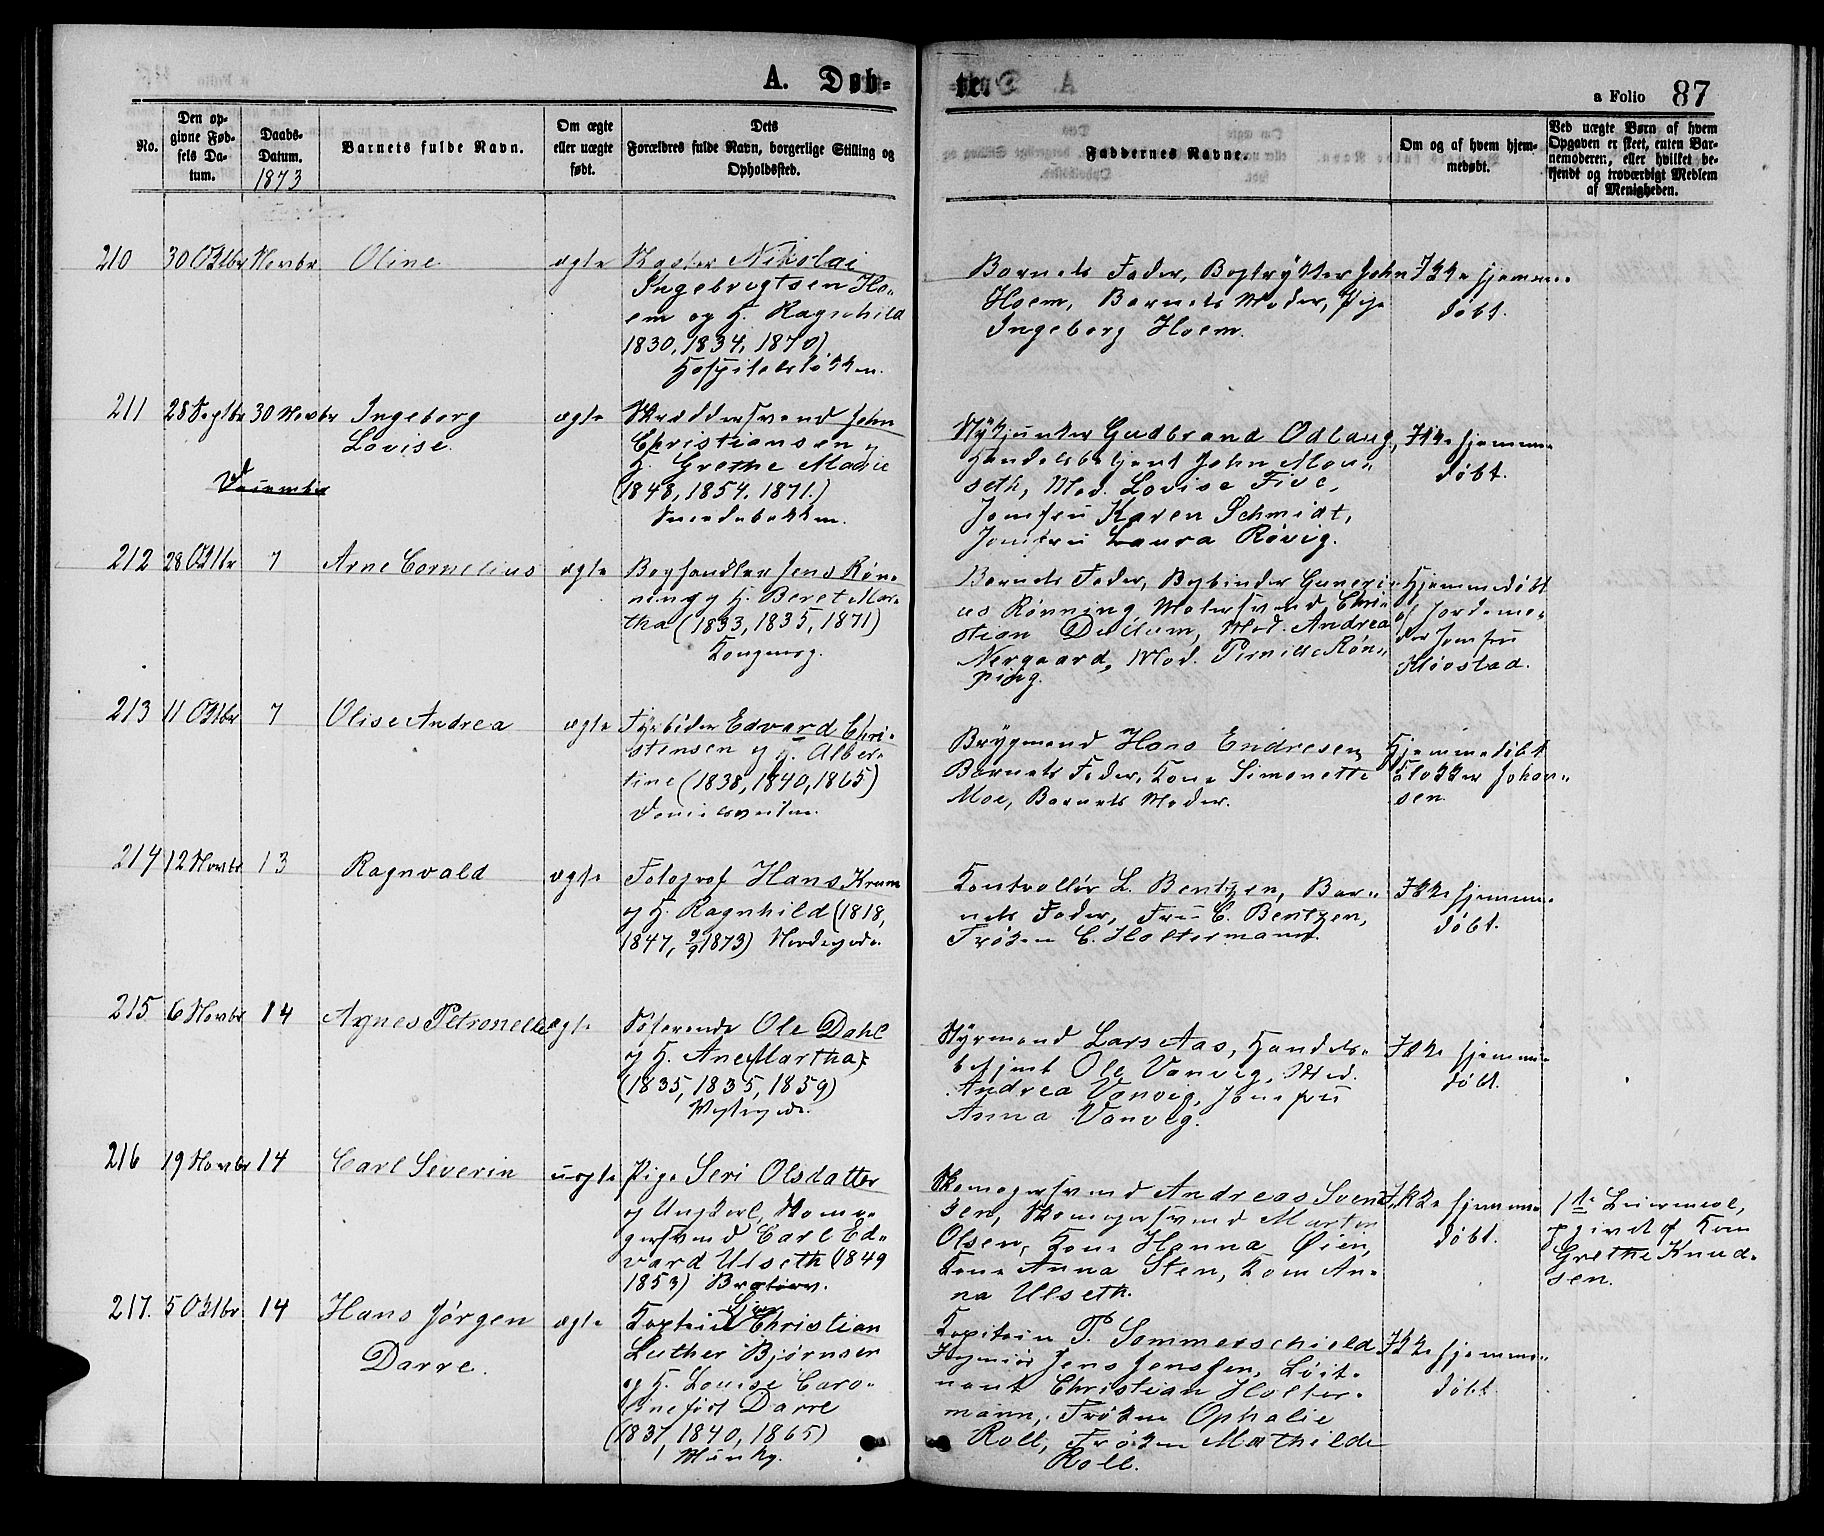 A. Døb-
te.
a Folio 87
No.
Den op-
givne Fød-
sels Da-
tum.
Daabs-
Datum.
1873
Barnets fulde Navn.
Om ægte
eller uægte
født.
Dets
Forældres fulde Navn, borgerlige Stilling og
Opholdssted.
Faddernes Navne.
Om og af hvem hjem-
medøbt.
Ved uægte Børn af hvem
Opgaven er skeet, enten Bar-
nemoderen, eller hvilket be-
kjendt og troværdigt Medlem
af Menigheden.
210 30 Oktbr Novbr Oline ægte Nikolai
Ingebrigtsen Ho-
em og H. Ragnhild
1830, 1834, 1870)
Hospitalsløkken.
Barnets Fader, Bogtrykker John
Hoem, Barnets Moder, Pige
Ingeborg Hoem.
Ikke hjemme-
døbt.
211 28 Septbr 30 Novbr Ingeborg
Lovise.
ægte Skræddersvend John
Christiansen og
H. Grethe Marie
(1848, 1854. 1871.)
Smedebakken.
Gudbrand Odlaug,
Handelsbetjent John Mon-
seth, Mad. Lovise Five,
Jomfru Karen Schmidt,
Jomfru Laura Røvig.
Ikke hjemme-
døbt.
December
212 28 Oktbr 7 Arne Cornelius ægte Boghandler Jens Røn-
ning og H. Beret Mar-
tha (1833, 1835, 1871)
Kongensg.
Barnets Fader, Bogbinder Guneri-
us Rønning, Malersvend Chri-
stian Dullum, Mad. Andrea
Nergaard, Mad. Pernille Røn-
ning.
Hjemmedøbt
af Jordemo-
der Jomfru
Miostad.
213 11 Oktbr 7 Olise Andrea ægte Edvard Chri-
stensen og H. Alber-
tine (1838, 1840, 1865)
Danielsveiten.
Brygmand Hans Endresen,
Barnets Fader, Kone Simonette
Moe, Barnets Moder.
Hjemmedøbt
af Klokker Johan-
sen.
214 12 Novbr 13 Ragnvald ægte Fotograf Hans Krum
og H. Ragnhild (1818,
1847, 9/9 1873) Nordregade.
Kontrollør L. Bentzen, Bar-
nets Fader, Fru C. Bentzen,
Frøken C. Holtermann.
Ikke hjemme-
døbt.
215 6 Novbr 14 Agnes Petronelle ægte Søfarende Ole Dahl
og H. Ane Martha
(1835, 1835, 1859)
Styrmand Lars Aas, Handels-
betjent Ole Vanvig, Mad.
Andrea Vanvig, Jomfru
Anna Vanvig.
Ikke hjemme-
døbt.
216 19 Novbr 14 Carl Severin uægte Pige Seri Olsdatter
og Ungkarl, Skoma-
gersvend Carl Ed-
vard Ulseth (1849
1853) Bratøren.
Skomagersvend Andreas Svend-
sen, Skomagersvend Martin
Olsen, Kone Hanna Øien,
Kone Anna Sten, Kone An-
na Ulseth.
Ikke hjemme-
døbt.
1ste Leiermaal,
opgivet af Kone
Grethe Knud-
sen.
217. 5 Oktbr 14 Hans Jørgen
Darre.
ægte Kaptein Christian
Luther Bjørnsen
og H. Louise Caro-
line født Darre
(1837, 1840, 1865)
Munkg.
Kaptein P. Sommerschield,
Ingeniør Jens Jenssen, Løit-
nant Christian Holter-
mann, Frøken Ophalie
Roll, Frøken Mathilde
Roll.
Ikke hjemme-
døbt.